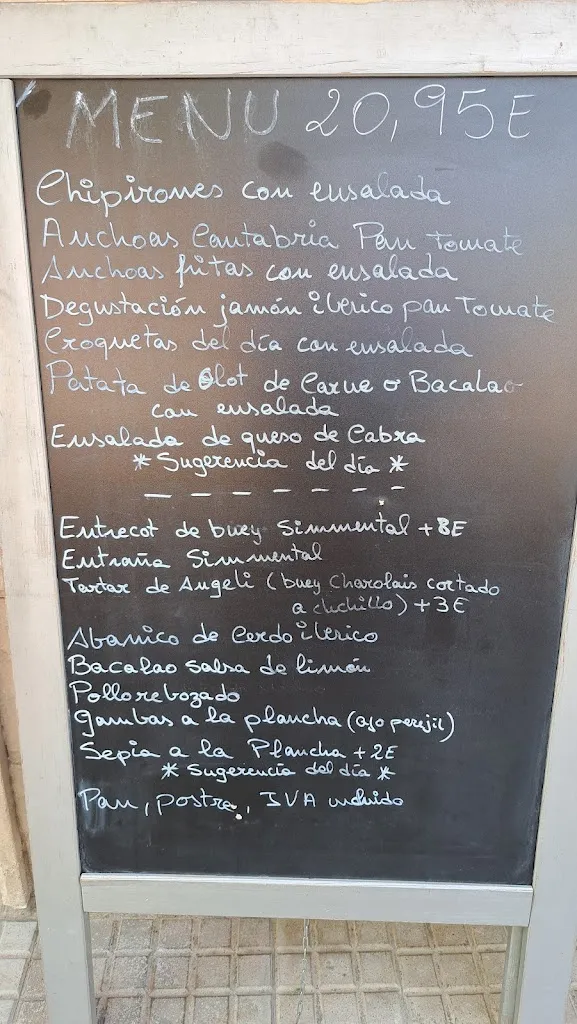 MENU 20,95E
Chipirones con ensalada
Anchoas Cantabria Pan Tomate
Anchoas fritas con ensalada
Degustación jamón iberico pan Tomate
Croquetas del día con ensalada
Patata de Olot de Carne o Bacalao
con ensalada
Ensalada de queso de Cabra
* Sugerencia del día *
- - - - - - -
Entrecot de buey Simmental +8E
Entraña Simmental
Tartar de Angeli (buey Charolais cortado
a cuchillo) +3E
Abanico de Cerdo iberico
Bacalao salsa de limón
Pollo rebozado
gambas a la plancha (ajo perejil)
Sepia a la Plancha +2E
* Sugerencia del día *
Pan, postre, IVA incluido